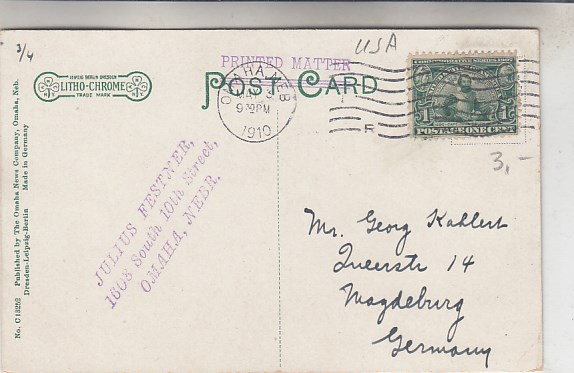 3/4
USA
PRINTED MATTER
POST CARD
LEIPZIG BERLIN DRESDEN
LITHO-CHROME
TRADE MARK
OMAHA, NEB.
MAY 3
9 30 PM
1910
R
COMMEMORATIVE SERIES 1907
1 1
POSTAGE ONE CENT
3,-
JULIUS FESTNER,
1608 South 10th Street,
OMAHA, NEBR.
Mr. Georg Kahlert
Queerstr 14
Magdeburg
Germany
No. C 13252 Published by The Omaha News Company, Omaha, Neb.
Dresden-Leipzig-Berlin Made in Germany